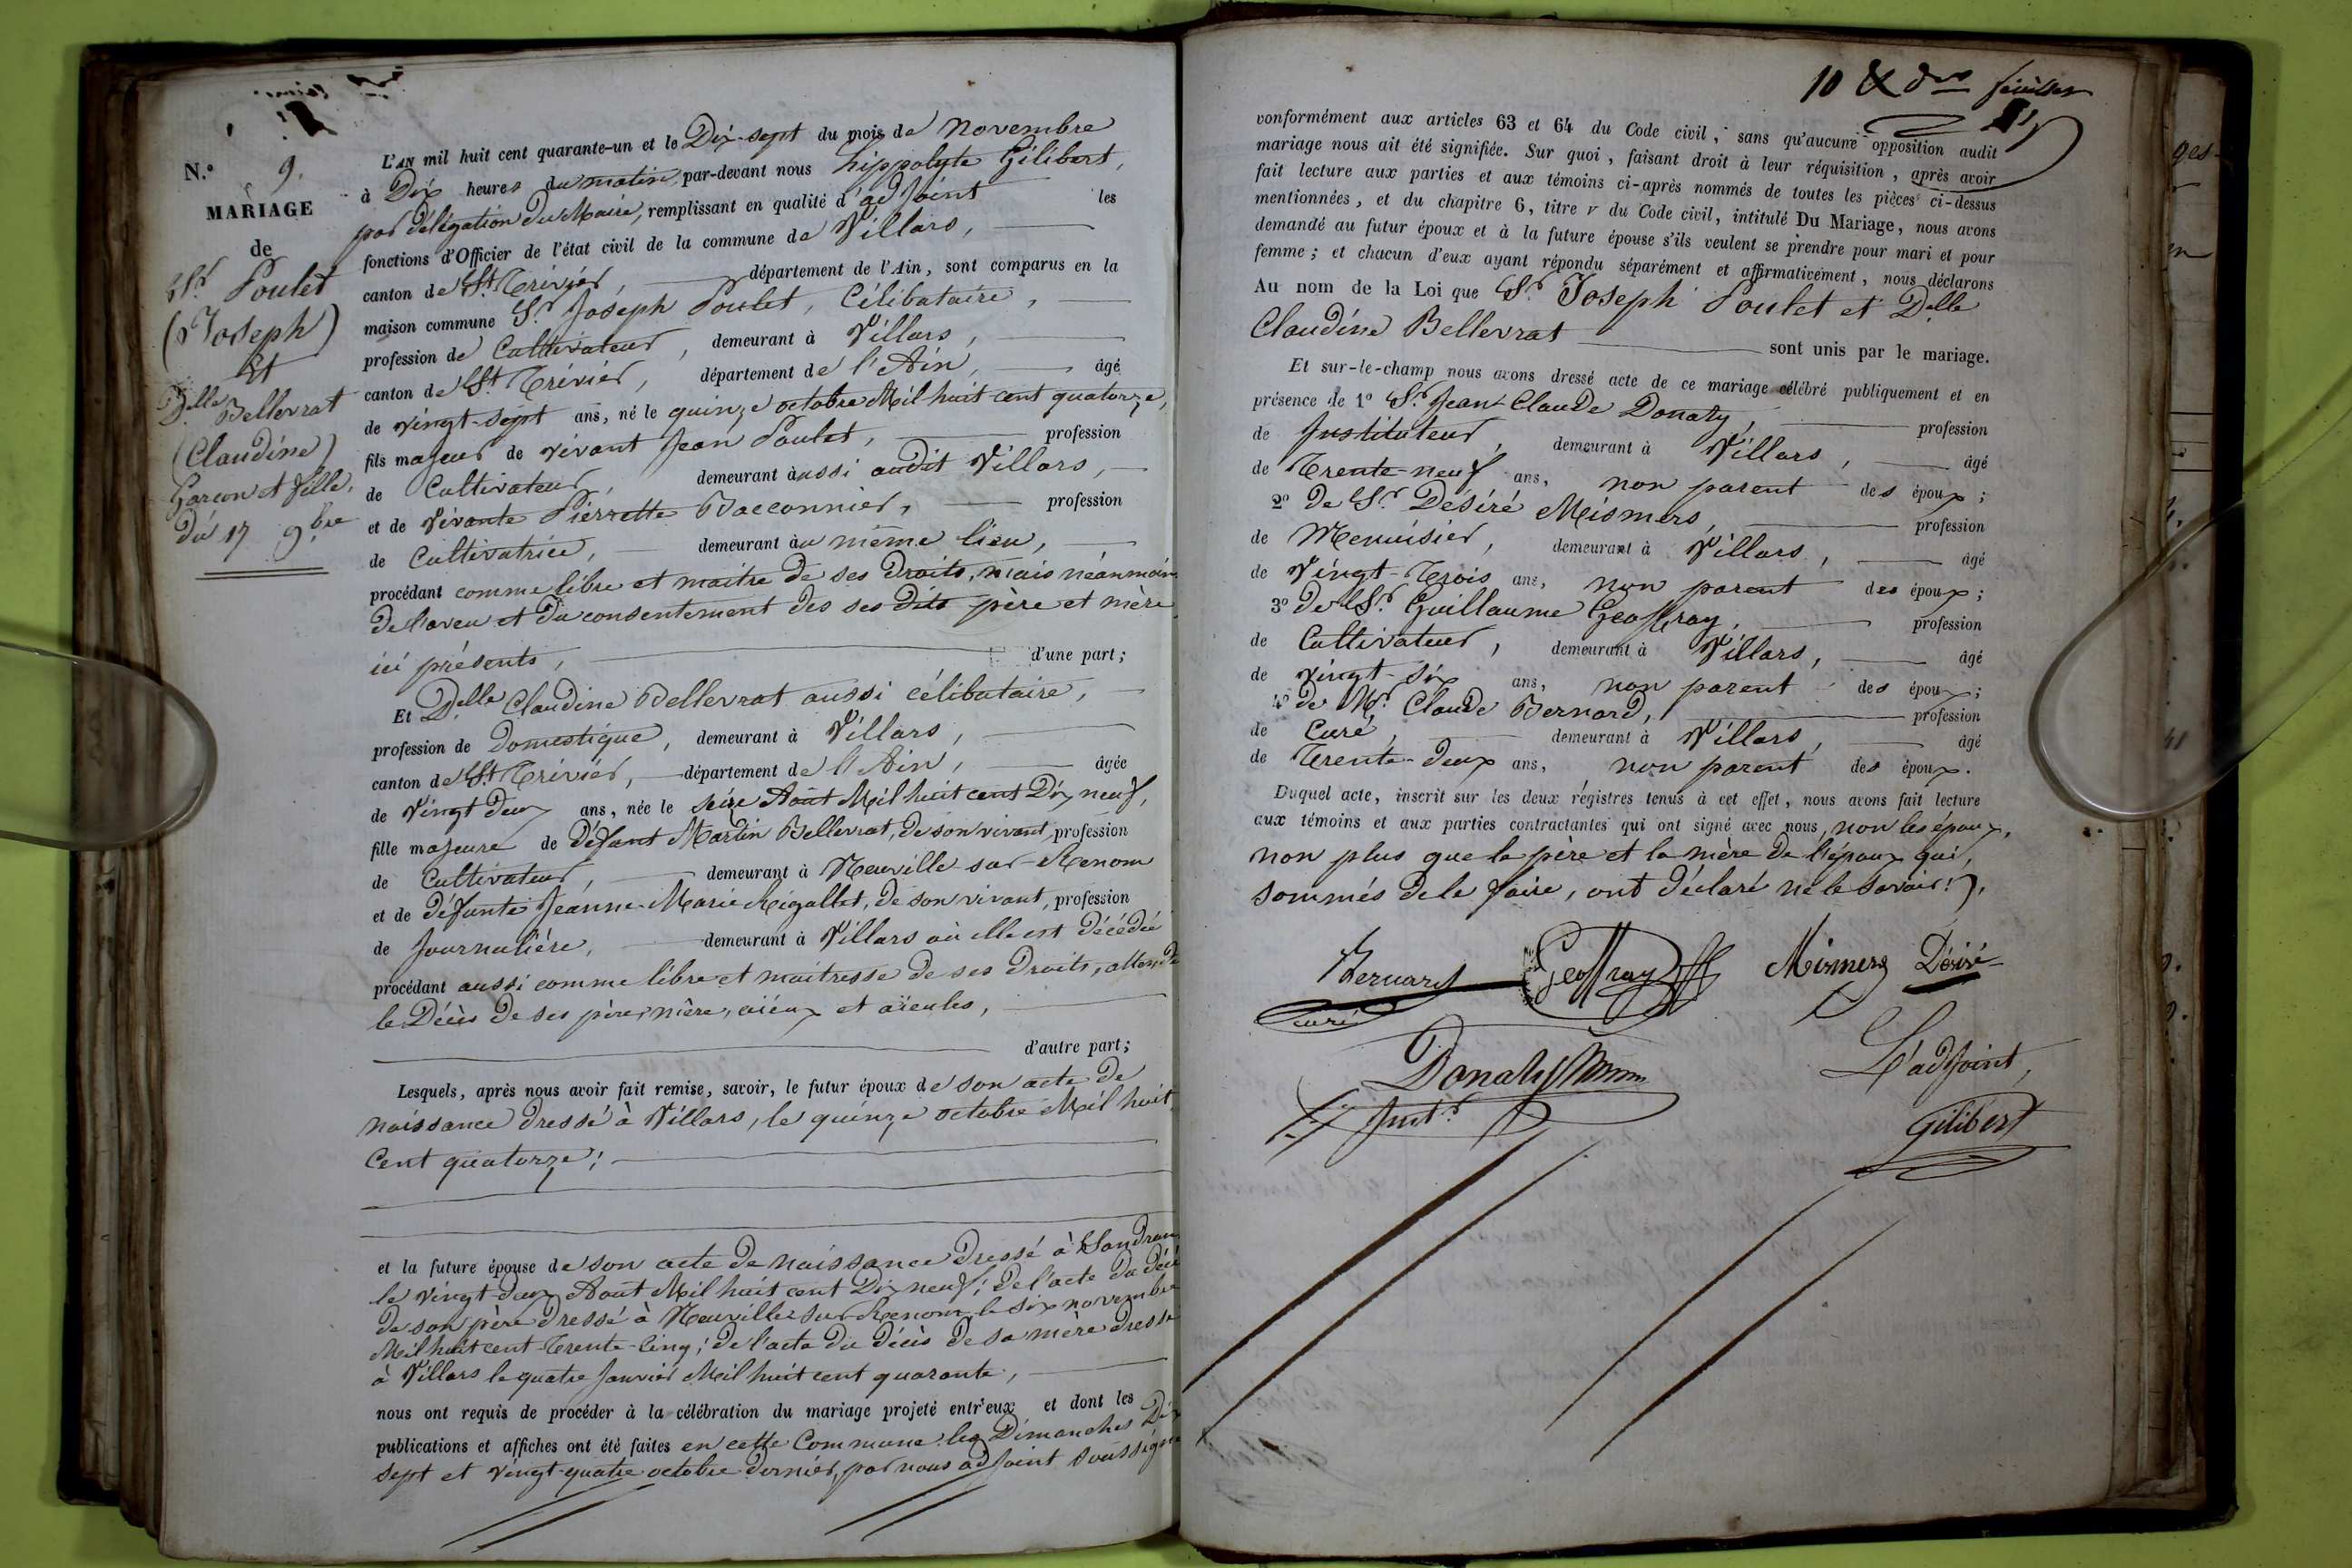 N.º 9.
MARIAGE
de
Sr. Poulet
(Joseph)
Et
Delle Bellevrat
(Claudine)
Garçon et fille.
Du 17 9.bre
L'AN mil huit cent quarante-un et le Dix-sept du mois de novembre
à Dix heures du matin par-devant nous hippolyte Gilibert,
par délégation du Maire, remplissant en qualité d'adjoint les
fonctions d'Officier de l'état civil de la commune de Villars,
canton de St. Trivier, département de l'Ain, sont comparus en la
maison commune Sr. Joseph Poulet, Célibataire,
profession de Cultivateur, demeurant à Villars,
canton de St. Trivier, département de l'Ain, âgé
de vingt-sept ans, né le quinze octobre Mil huit cent quatorze,
fils majeur de vivant Jean Poulet, profession
de Cultivateur, demeurant aussi audit Villars,
et de vivante Pierrette Bacconnier, profession
de Cultivatrice, demeurant au même lieu,
procédant comme libre et maitre de ses droits, mais néanmoins
de l'aveu et du consentement des ses dits père et mère
ici présents, d'une part;
Et Delle Claudine Bellevrat aussi célibataire,
profession de Domestique, demeurant à Villars,
canton de St. Trivier, département de l'Ain, âgée
de Vingt deux ans, née le seize Août Mil huit cent Dix neuf,
fille majeure de défunt Martin Bellevrat, de son vivant, profession
de Cultivateur, demeurant à Neuville-sur-Renom
et de défunte Jeanne-Marie Rigollet, de son vivant, profession
de Journalière, demeurant à Villars où elle est Décédée
procédant aussi comme libre et maitresse de ses Droits, attendu
le Décès de ses père, mère, aïeux et aïeules,
d'autre part;
Lesquels, après nous avoir fait remise, savoir, le futur époux de son acte de
naissance dressé à Villars, le quinze octobre Mil huit
Cent quatorze;
et la future épouse de son acte de naissance dressé à Sandrans
le vingt-deux Août Mil huit cent Dix neuf; de l'acte du décès
de son père dressé à Neuville sur Renom le six novembre
Mil huit cent-Trente-Cinq; de l'acte du décès de sa mère dressé
à Villars le quatre Janvier Mil huit cent quarante,
nous ont requis de procéder à la célébration du mariage projeté entr'eux et dont les
publications et affiches ont été faites en cette Commune les Dimanches Dix
sept et vingt-quatre octobre dernier, par nous adjoint soussigné
10 & der feuillet
conformément aux articles 63 et 64 du Code civil, sans qu'aucune opposition audit
mariage nous ait été signifiée. Sur quoi, faisant droit à leur réquisition, après avoir
fait lecture aux parties et aux témoins ci-après nommés de toutes les pièces ci-dessus
mentionnées, et du chapitre 6, titre v du Code civil, intitulé Du Mariage, nous avons
demandé au futur époux et à la future épouse s'ils veulent se prendre pour mari et pour
femme; et chacun d'eux ayant répondu séparément et affirmativement, nous déclarons
Au nom de la Loi que Sr. Joseph Poulet et Delle
Claudine Bellevrat sont unis par le mariage.
Et sur-le-champ nous avons dressé acte de ce mariage célébré publiquement et en
présence de 1º Sr. Jean-Claude Donaty, profession
de Instituteur, demeurant à Villars, âgé
de Trente-neuf ans, non parent des époux;
2º de Sr. Désiré Mismers, profession
de Menuisier, demeurant à Villars, âgé
de Vingt-Trois ans, non parent des époux;
3º de Sr. Guillaume Geoffray, profession
de Cultivateur, demeurant à Villars, âgé
de vingt-six ans, non parent des époux;
4º de Mr. Claude Bernard, profession
de Curé, demeurant à Villars, âgé
de Trente-deux ans, non parent des époux.
Duquel acte, inscrit sur les deux régistres tenus à cet effet, nous avons fait lecture
aux témoins et aux parties contractantes qui ont signé avec nous, non les époux,
non plus que le père et la mère de l'époux qui,
sommés de le faire, ont déclaré ne le savoir.
Bernard Geoffray Mismers Désiré
curé
Donaty L'adjoint,
Inst.r Gilibert